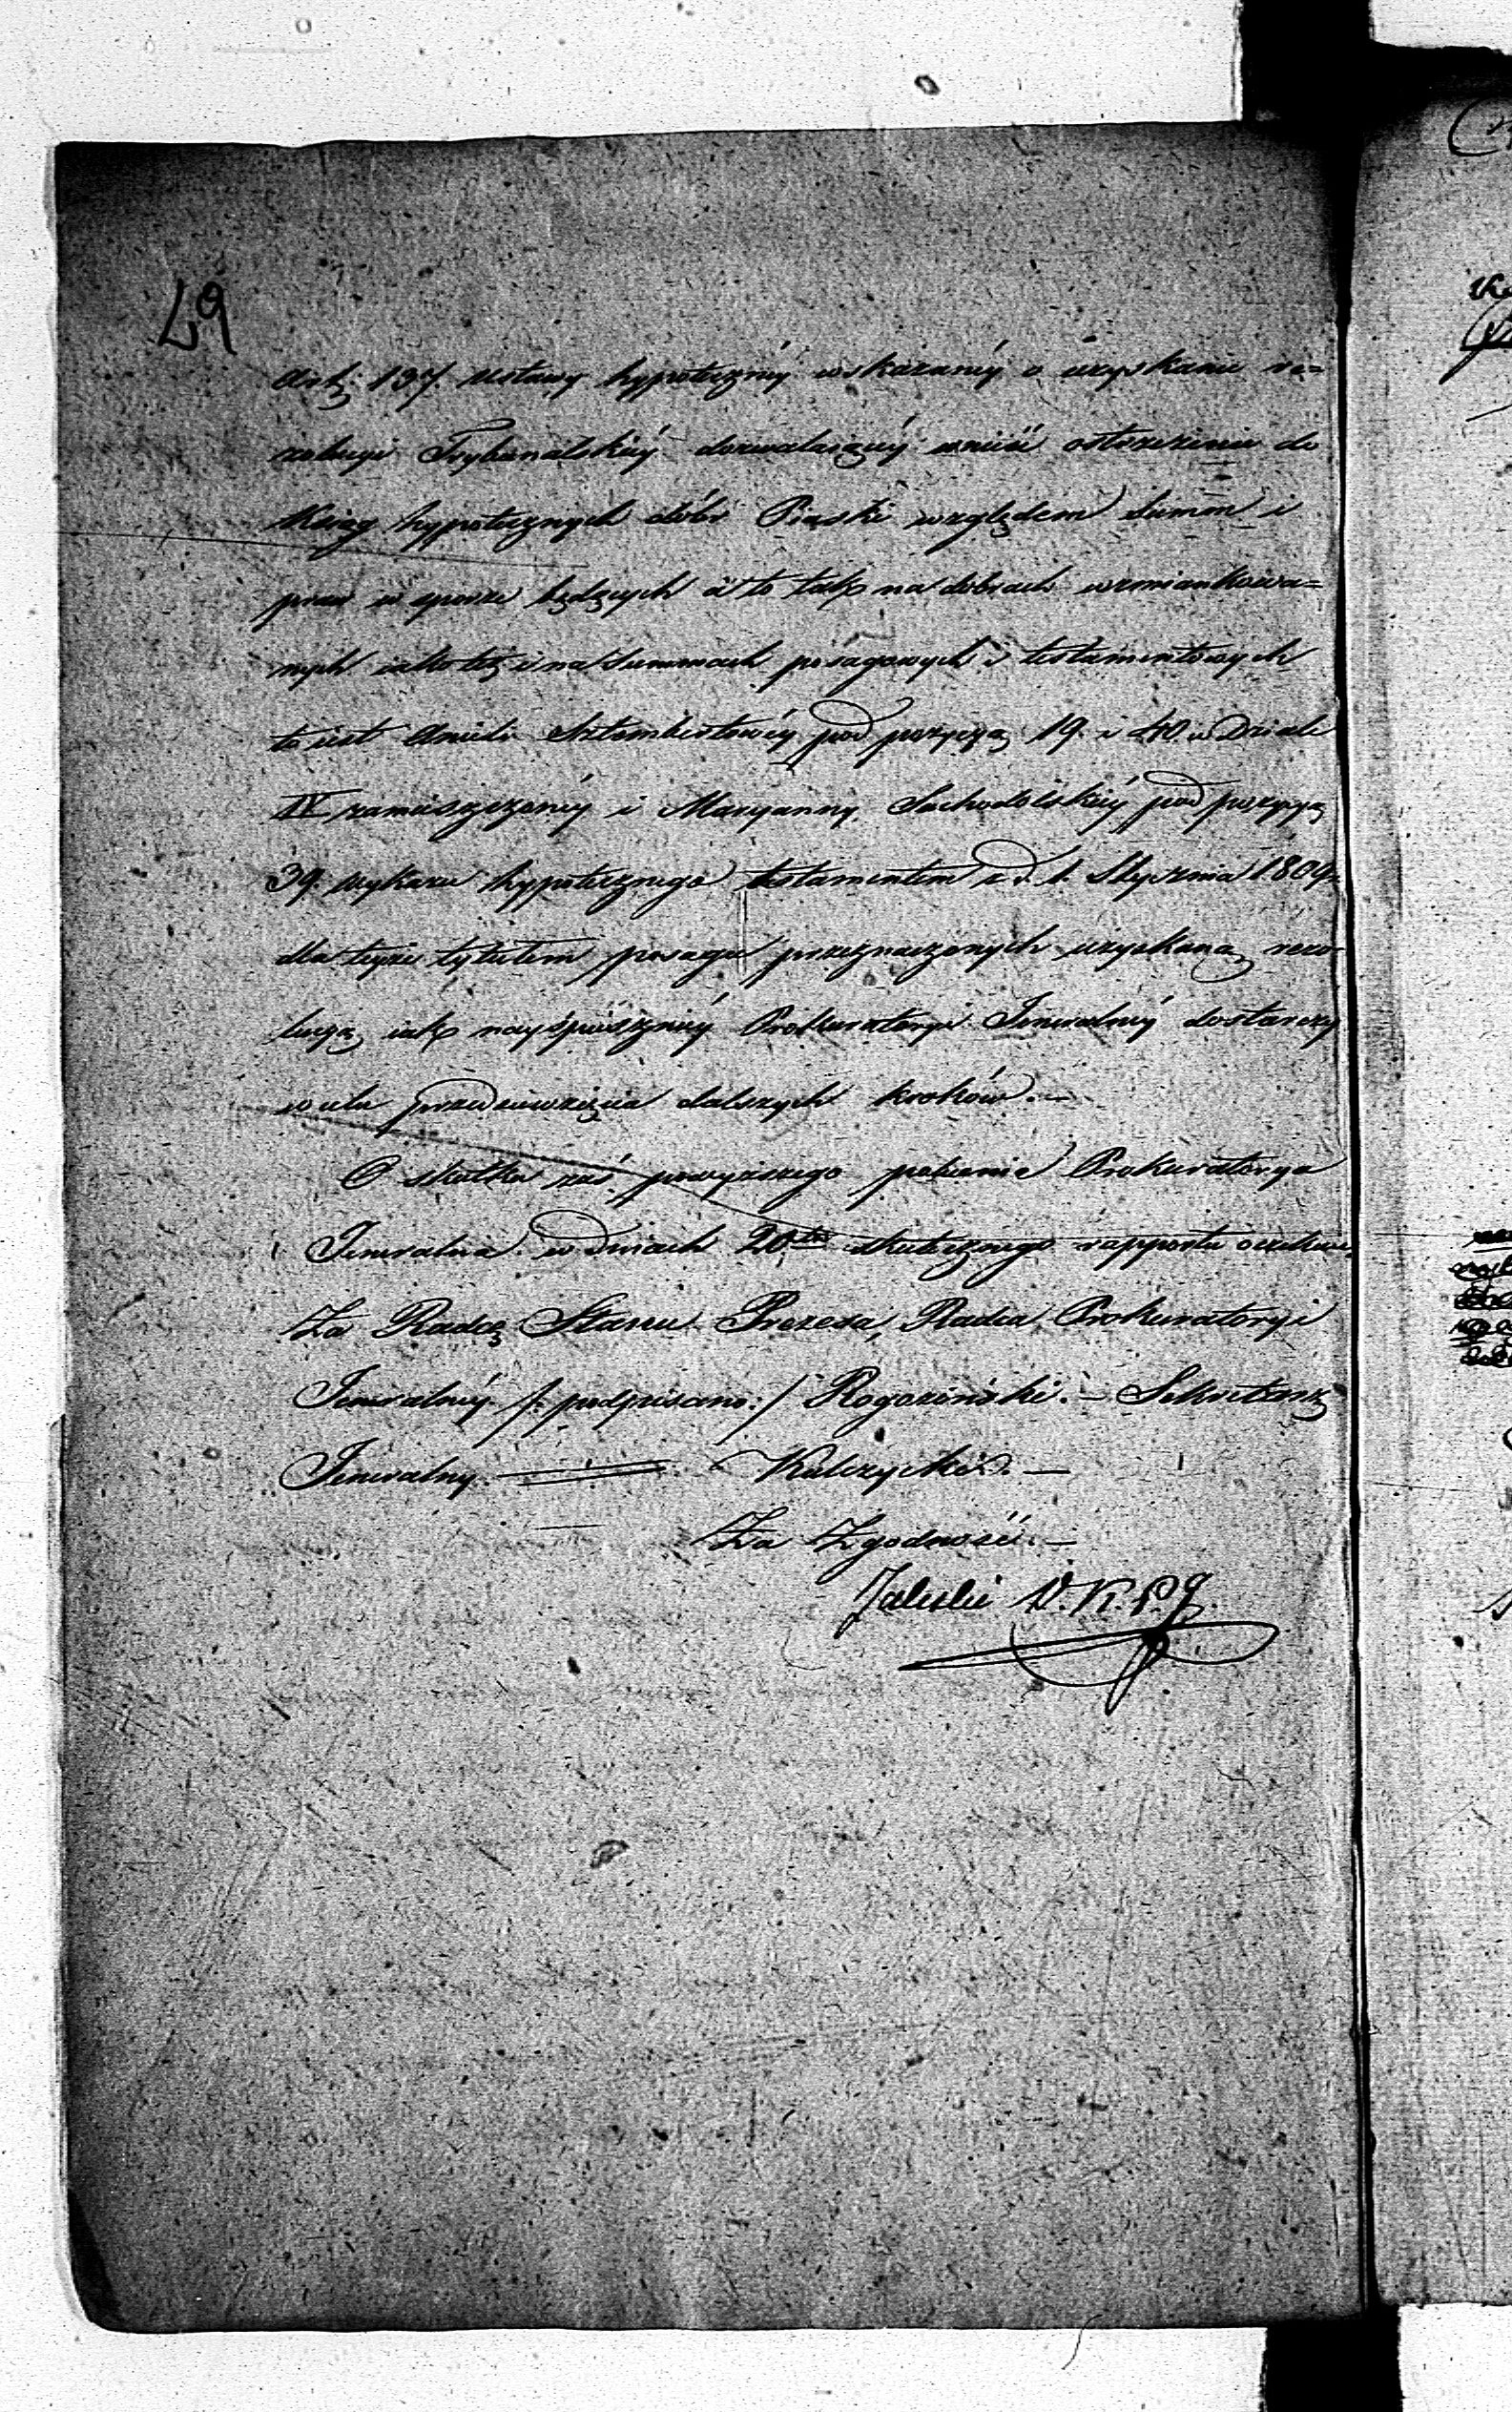 Art. 137. Ustawy hypoteczney wskazaney o uzyskanie re=
zolucyi Trybunalskiey dozwalaiącey wnieść ostrzeżenie do
Xiąg hypotecznych dóbr Piaski względem Summ i
praw w sporze będących a to tak na dobrach wzmiankowa=
nych iako też i na Summach posagowych i testamentowych
to iest Anieli pod pozycyą 19. i 40. w Dziale
IV zamieszczoney i Maryanny Suchodolskiey pod pozycyą
39. wykazu hypotecznego testamentem z d. 1. Stycznia 1809 r.
dla teyże tytułem posagu przeznaczonych uzyskaną rezo=
lucyą iak nayspieszniey Prokuratoryi Jeneralney dostarczy
w celu przedsięwzięcia dalszych kroków. —
O skutku zaś powyższego polecenia Prokuratorya
Jeneralna w dniach 20tu skutecznego rapportu oczekuie.
Za Radcę Stanu Prezesa, Radca Prokuratoryi
Jeneralney /: podpisano :/ Rogoziński. — Sekretarz
Jeneralny. — Kulczycki. —
Za Zgodność. —